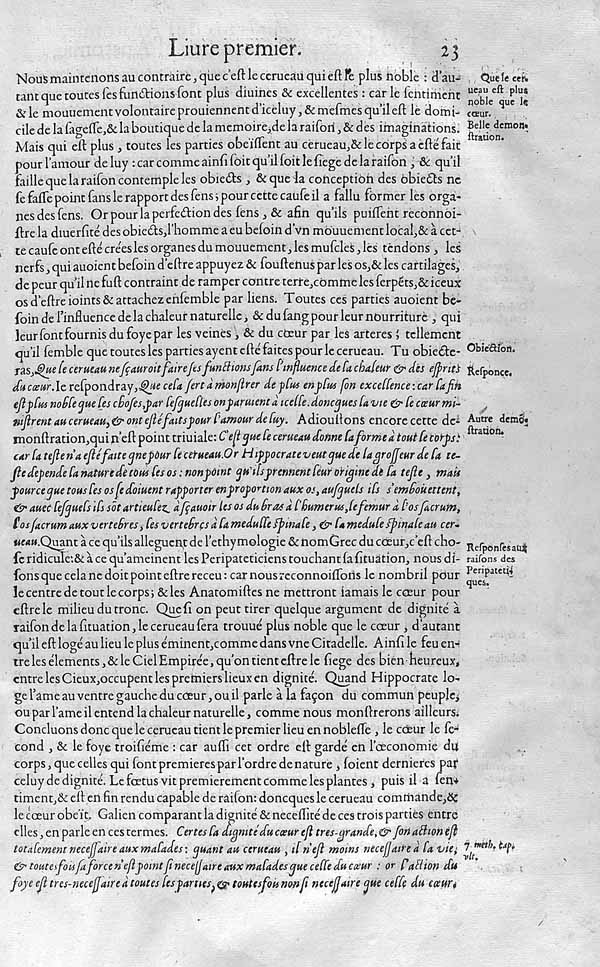 Liure premier. 23
Nous maintenons au contraire, que c'eſt le cerueau qui eſt le plus noble : d'au-
tant que toutes ſes functions ſont plus diuines & excellentes : car le ſentiment
& le mouuement volontaire prouiennent d'iceluy, & meſmes qu'il eſt le domi-
cile de la ſageſſe, & la boutique de la memoire, de la raiſon, & des imaginations.
Mais qui eſt plus, toutes les parties obeïſſent au cerueau, & le corps a eſté fait
pour l'amour de luy : car comme ainſi ſoit qu'il ſoit le ſiege de la raiſon, & qu'il
faille que la raiſon contemple les obiects, & que la conception des obiects ne
ſe faſſe point ſans le rapport des ſens; pour cette cauſe il a fallu former les orga-
nes des ſens. Or pour la perfection des ſens, & afin qu'ils puiſſent reconnoi-
ſtre la diuerſité des obiects, l'homme a eu beſoin d'vn mouuement local, & à cet-
te cauſe ont eſté crées les organes du mouuement, les muſcles, les tendons, les
nerfs, qui auoient beſoin d'eſtre appuyez & ſouſtenus par les os, & les cartilages,
de peur qu'il ne fuſt contraint de ramper contre terre, comme les ſerpẽts, & iceux
os d'eſtre ioints & attachez enſemble par liens. Toutes ces parties auoient be-
ſoin de l'influence de la chaleur naturelle, & du ſang pour leur nourriture, qui
leur ſont fournis du foye par les veines, & du cœur par les arteres; tellement
qu'il ſemble que toutes les parties ayent eſté faites pour le cerueau. Tu obiecte-
ras, Que le cerueau ne ſçauroit faire ſes functions ſans l'influence de la chaleur & des eſprits
du cœur. Ie reſpondray, Que cela ſert à monſtrer de plus en plus ſon excellence : car la fin
eſt plus noble que les choſes, par leſquelles on paruient à icelle. doncques la vie & le cœur mi-
niſtrent au cerueau, & ont eſté faits pour l'amour de luy. Adiouſtons encore cette de-
monſtration, qui n'eſt point triuiale: C'eſt que le cerueau donne la forme à tout le corps:
car la teſte n'a eſté faite que pour le cerueau. Or Hippocrate veut que de la groſſeur de la te-
ſte depende la nature de tous les os : non point qu'ils prennent leur origine de la teſte, mais
pource que tous les os ſe doiuent rapporter en proportion aux os, auſquels ils s'emboüettent,
& auec leſquels ils sõt articulez, à ſçauoir les os du bras à l'humerus, le femur à l'os ſacrum,
l'os ſacrum aux vertebres, les vertebres à la medulle ſpinale, & la medule ſpinale au cer-
ueau. Quant à ce qu'ils alleguent de l'ethymologie & nom Grec du cœur, c'eſt cho-
ſe ridicule: & à ce qu'ameinent les Peripateticiens touchant ſa ſituation, nous di-
ſons que cela ne doit point eſtre receu : car nous reconnoiſſons le nombril pour
le centre de tout le corps; & les Anatomiſtes ne mettront iamais le cœur pour
eſtre le milieu du tronc. Que ſi on peut tirer quelque argument de dignité à
raiſon de la ſituation, le cerueau ſera trouué plus noble que le cœur, d'autant
qu'il eſt logé au lieu le plus éminent, comme dans vne Citadelle. Ainſi le feu en-
tre les élements, & le Ciel Empirée, qu'on tient eſtre le ſiege des bien heureux,
entre les Cieux, occupent les premiers lieux en dignité. Quand Hippocrate lo-
ge l'ame au ventre gauche du cœur, ou il parle à la façon du commun peuple,
ou par l'ame il entend la chaleur naturelle, comme nous monſtrerons ailleurs.
Concluons donc que le cerueau tient le premier lieu en nobleſſe, le cœur le ſe-
cond, & le foye troiſiéme : car auſſi cet ordre eſt gardé en l'œconomie du
corps, que celles qui ſont premieres par l'ordre de nature, ſoient dernieres par
celuy de dignité. Le fœtus vit premierement comme les plantes, puis il a ſen-
timent, & eſt en fin rendu capable de raiſon: doncques le cerueau commande, &
le cœur obeït. Galien comparant la dignité & neceſſité de ces trois parties entre
elles, en parle en ces termes. Certes la dignité du cœur eſt tres-grande, & ſon action eſt
totalement neceſſaire aux malades : quant au cerueau, il n'eſt moins neceſſaire à la vie,
& toutesfois ſa force n'eſt point ſi neceſſaire aux malades que celle du cœur : or l'action du
foye eſt tres-neceſſaire à toutes les parties, & toutesfois non ſi neceſſaire que celle du cœur.
Que le cer
ueau eſt plus
noble que le
cœur.
Belle demon
ſtration.
Obiection.
Reſponce.
Autre demõ
ſtration.
Reſponſes aux
raiſons des
Peripateti
ques.
7. meth. cap.
vlt.